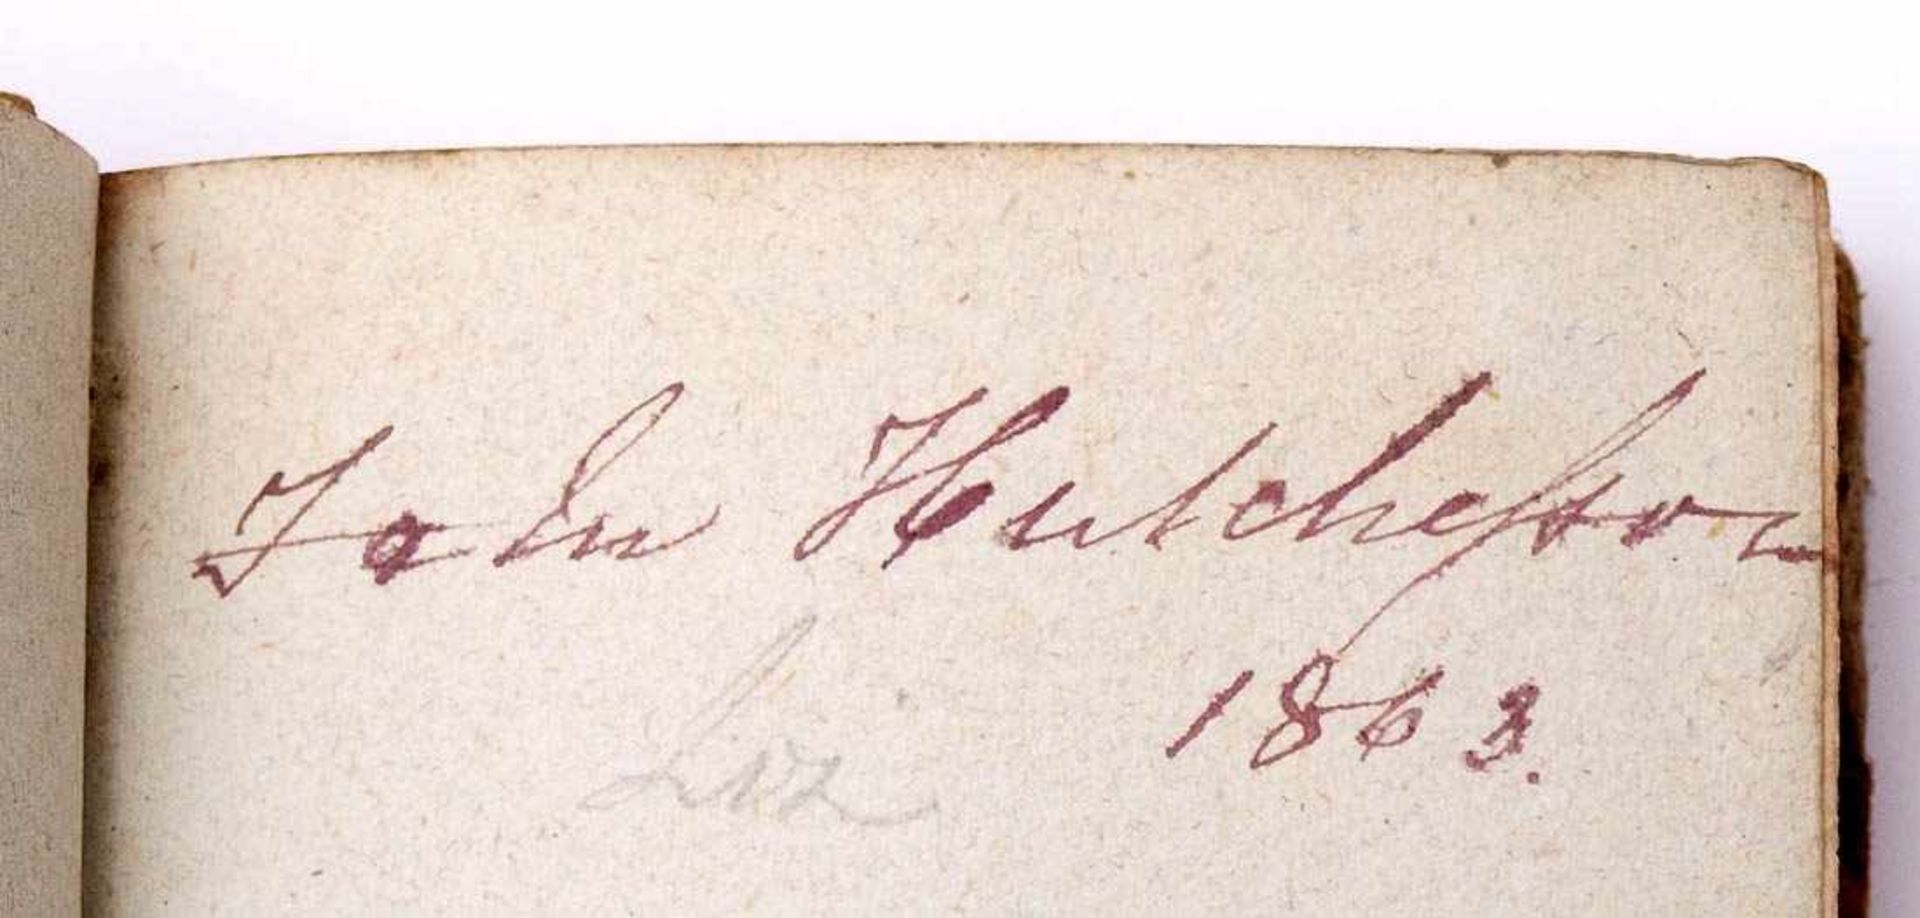 John Hutchesson
1863.
Liz